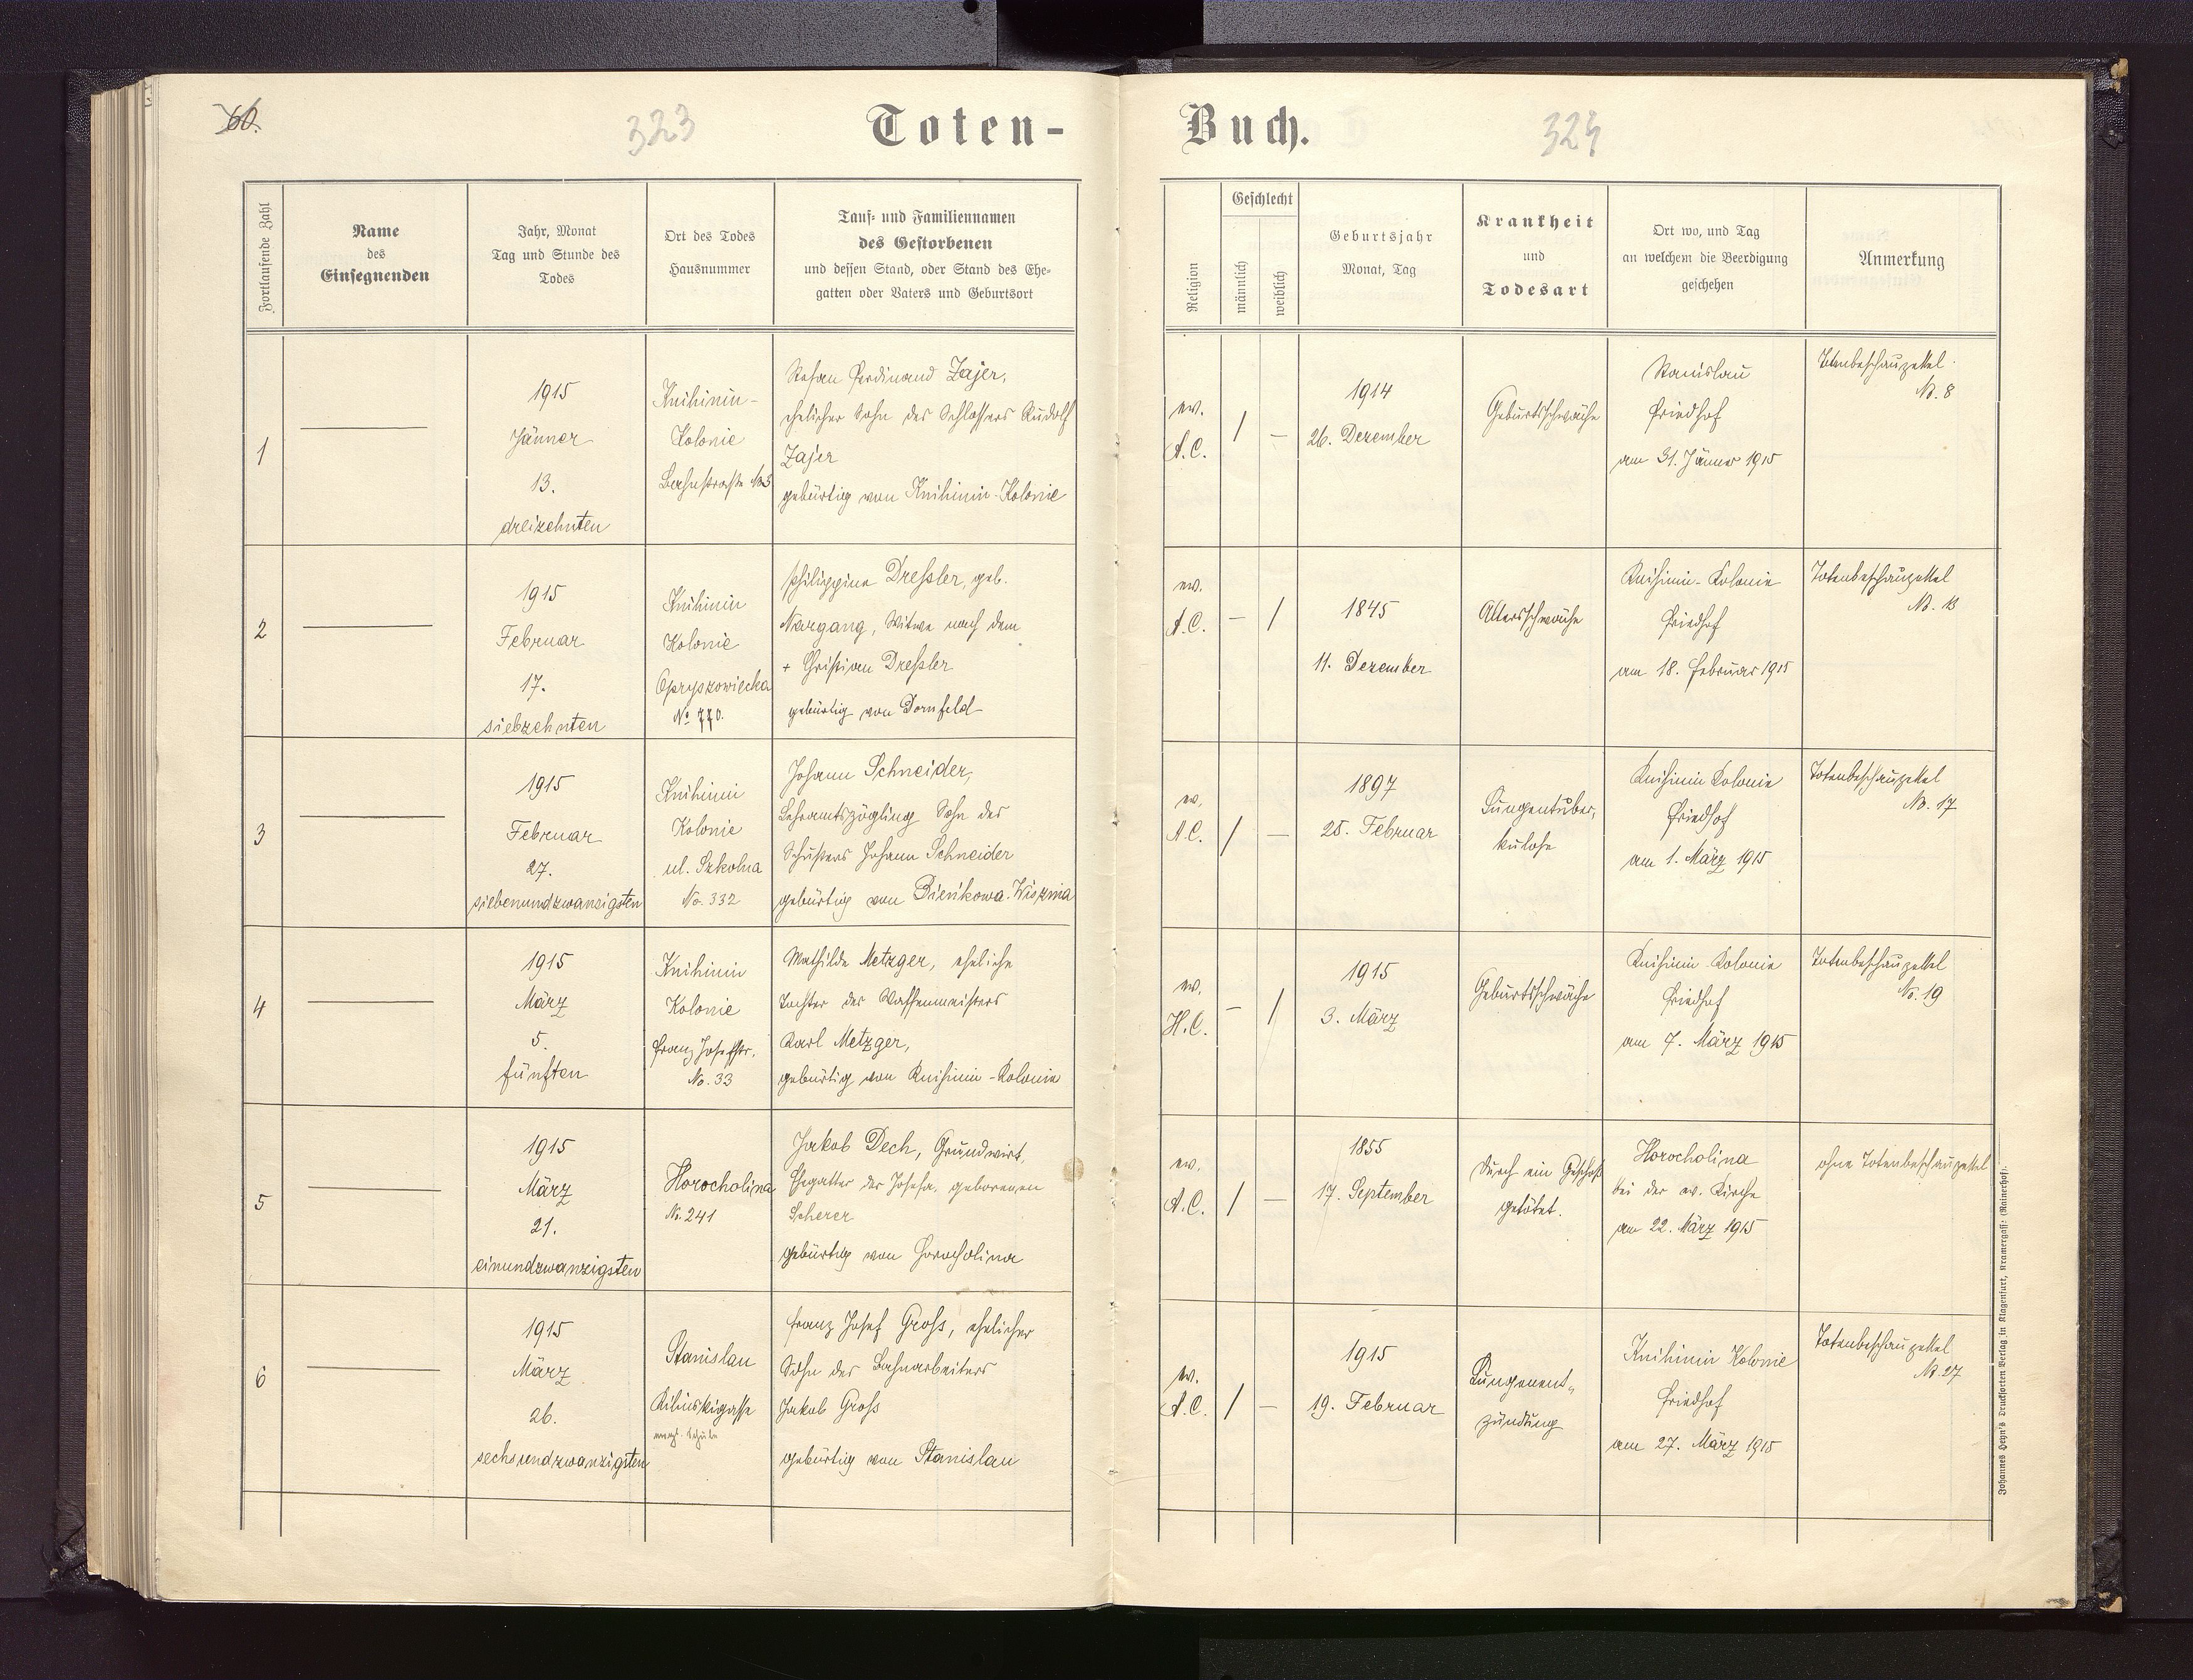 66.
323
Toten-
Buch.
324
Fortlaufende Zahl
Name
des
Einsegnenden
Jahr, Monat
Tag und Stunde des
Todes
Ort des Todes
Hausnummer
Tauf- und Familiennamen
des Gestorbenen
und dessen Stand, oder Stand des Ehe-
gatten oder Vaters und Geburtsort
Religion
Geschlecht
männlich
weiblich
Geburtsjahr
Monat, Tag
Krankheit
und
Todesart
Ort wo, und Tag
an welchem die Beerdigung
geschehen
Anmerkung
1
1915
Jänner
13.
dreizehnten
Knihinin-
Kolonie
Bahnstraße No 5
Stefan Ferdinand Zajer,
ehelicher Sohn des Schlossers Rudolf
Zajer
gebürtig von Knihinin-Kolonie
ev.
A.C.
/
—
1914
26. Dezember
Geburtsschwäche
Stanislau
Friedhof
am 31. Jänner 1915
Totenbeschauzettel
No. 8
2
1915
Februar
17.
siebzehnten
Knihinin
Kolonie
Opryszowiecka
No 770.
Philippina Dreßler, geb.
Nargang, Witwe nach dem
+ Christian Dreßler
gebürtig von Dornfeld
ev.
A.C.
—
/
1845
11. Dezember
Altersschwäche
Knihinin-Kolonie
Friedhof
am 18. Februar 1915
Totenbeschauzettel
No. 13
3
1915
Februar
27.
siebenundzwanzigsten
Knihinin
Kolonie
ul. Szkolna
No. 332
Johann Schneider,
Lehramtszögling Sohn des
Schusters Johann Schneider
gebürtig von Bieńkowa-Wisznia
ev.
A.C.
/
—
1897
25. Februar
Lungentuber,
kulose
Knihinin Kolonie
Friedhof
am 1. März 1915
Totenbeschauzettel
No. 17
4
1915
März
5.
fünften
Knihinin
Kolonie
Franz Josefstr.
No. 33
Mathilde Metzger, eheliche
Tochter des Waffenmeisters
Karl Metzger,
gebürtig von Knihinin-Kolonie
ev.
H.C.
—
/
1915
3. März
Geburtsschwäche
Knihinin Kolonie
Friedhof
am 7. März 1915
Totenbeschauzettel
No. 19
5
1915
März
21.
einundzwanzigsten
Horocholina
No. 241
Jakob Dech, Grundwirt,
Ehegatter der Josefa, geborenen
Scherer
gebürtig von Horocholina
ev.
A.C.
/
—
1855
17. September
Durch ein Geschoß
getötet.
Horocholina
bei der ev. Kirche
am 22. März 1915
ohne Totenbeschauzettel
6
1915
März
26.
sechsundzwanzigsten
Stanislau
Kilinskigasse
evangl. Schule
Franz Josef Groß, ehelicher
Sohn des Bahnarbeiters
Jakob Groß
gebürtig von Stanislau
ev.
A.C.
/
—
1915
19. Februar
Lungenent„
zündung
Knihinin Kolonie
Friedhof
am 27. März 1915
Totenbeschauzettel
No. 27
Johannes Heyn's Drucksorten Verlag in Klagenfurt, Kramergass: (Rainerhof).